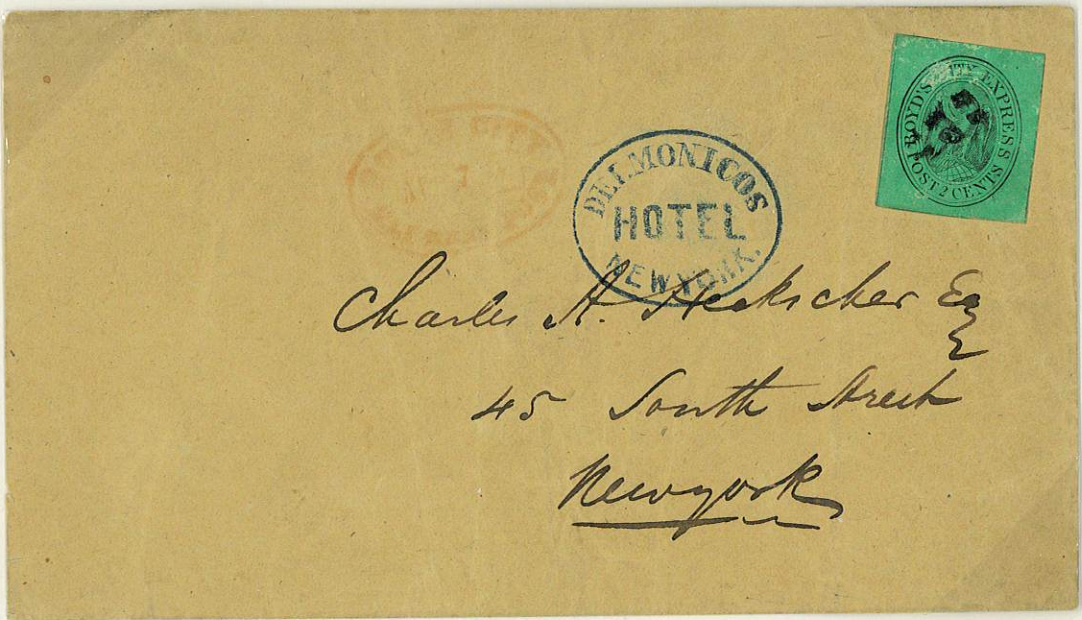 BOYD'S CITY EXPRESS
POST 2 CENTS
DELMONICOS
HOTEL
NEW YORK.
Charles A. Heckscher Esq
45 South Street
Newyork